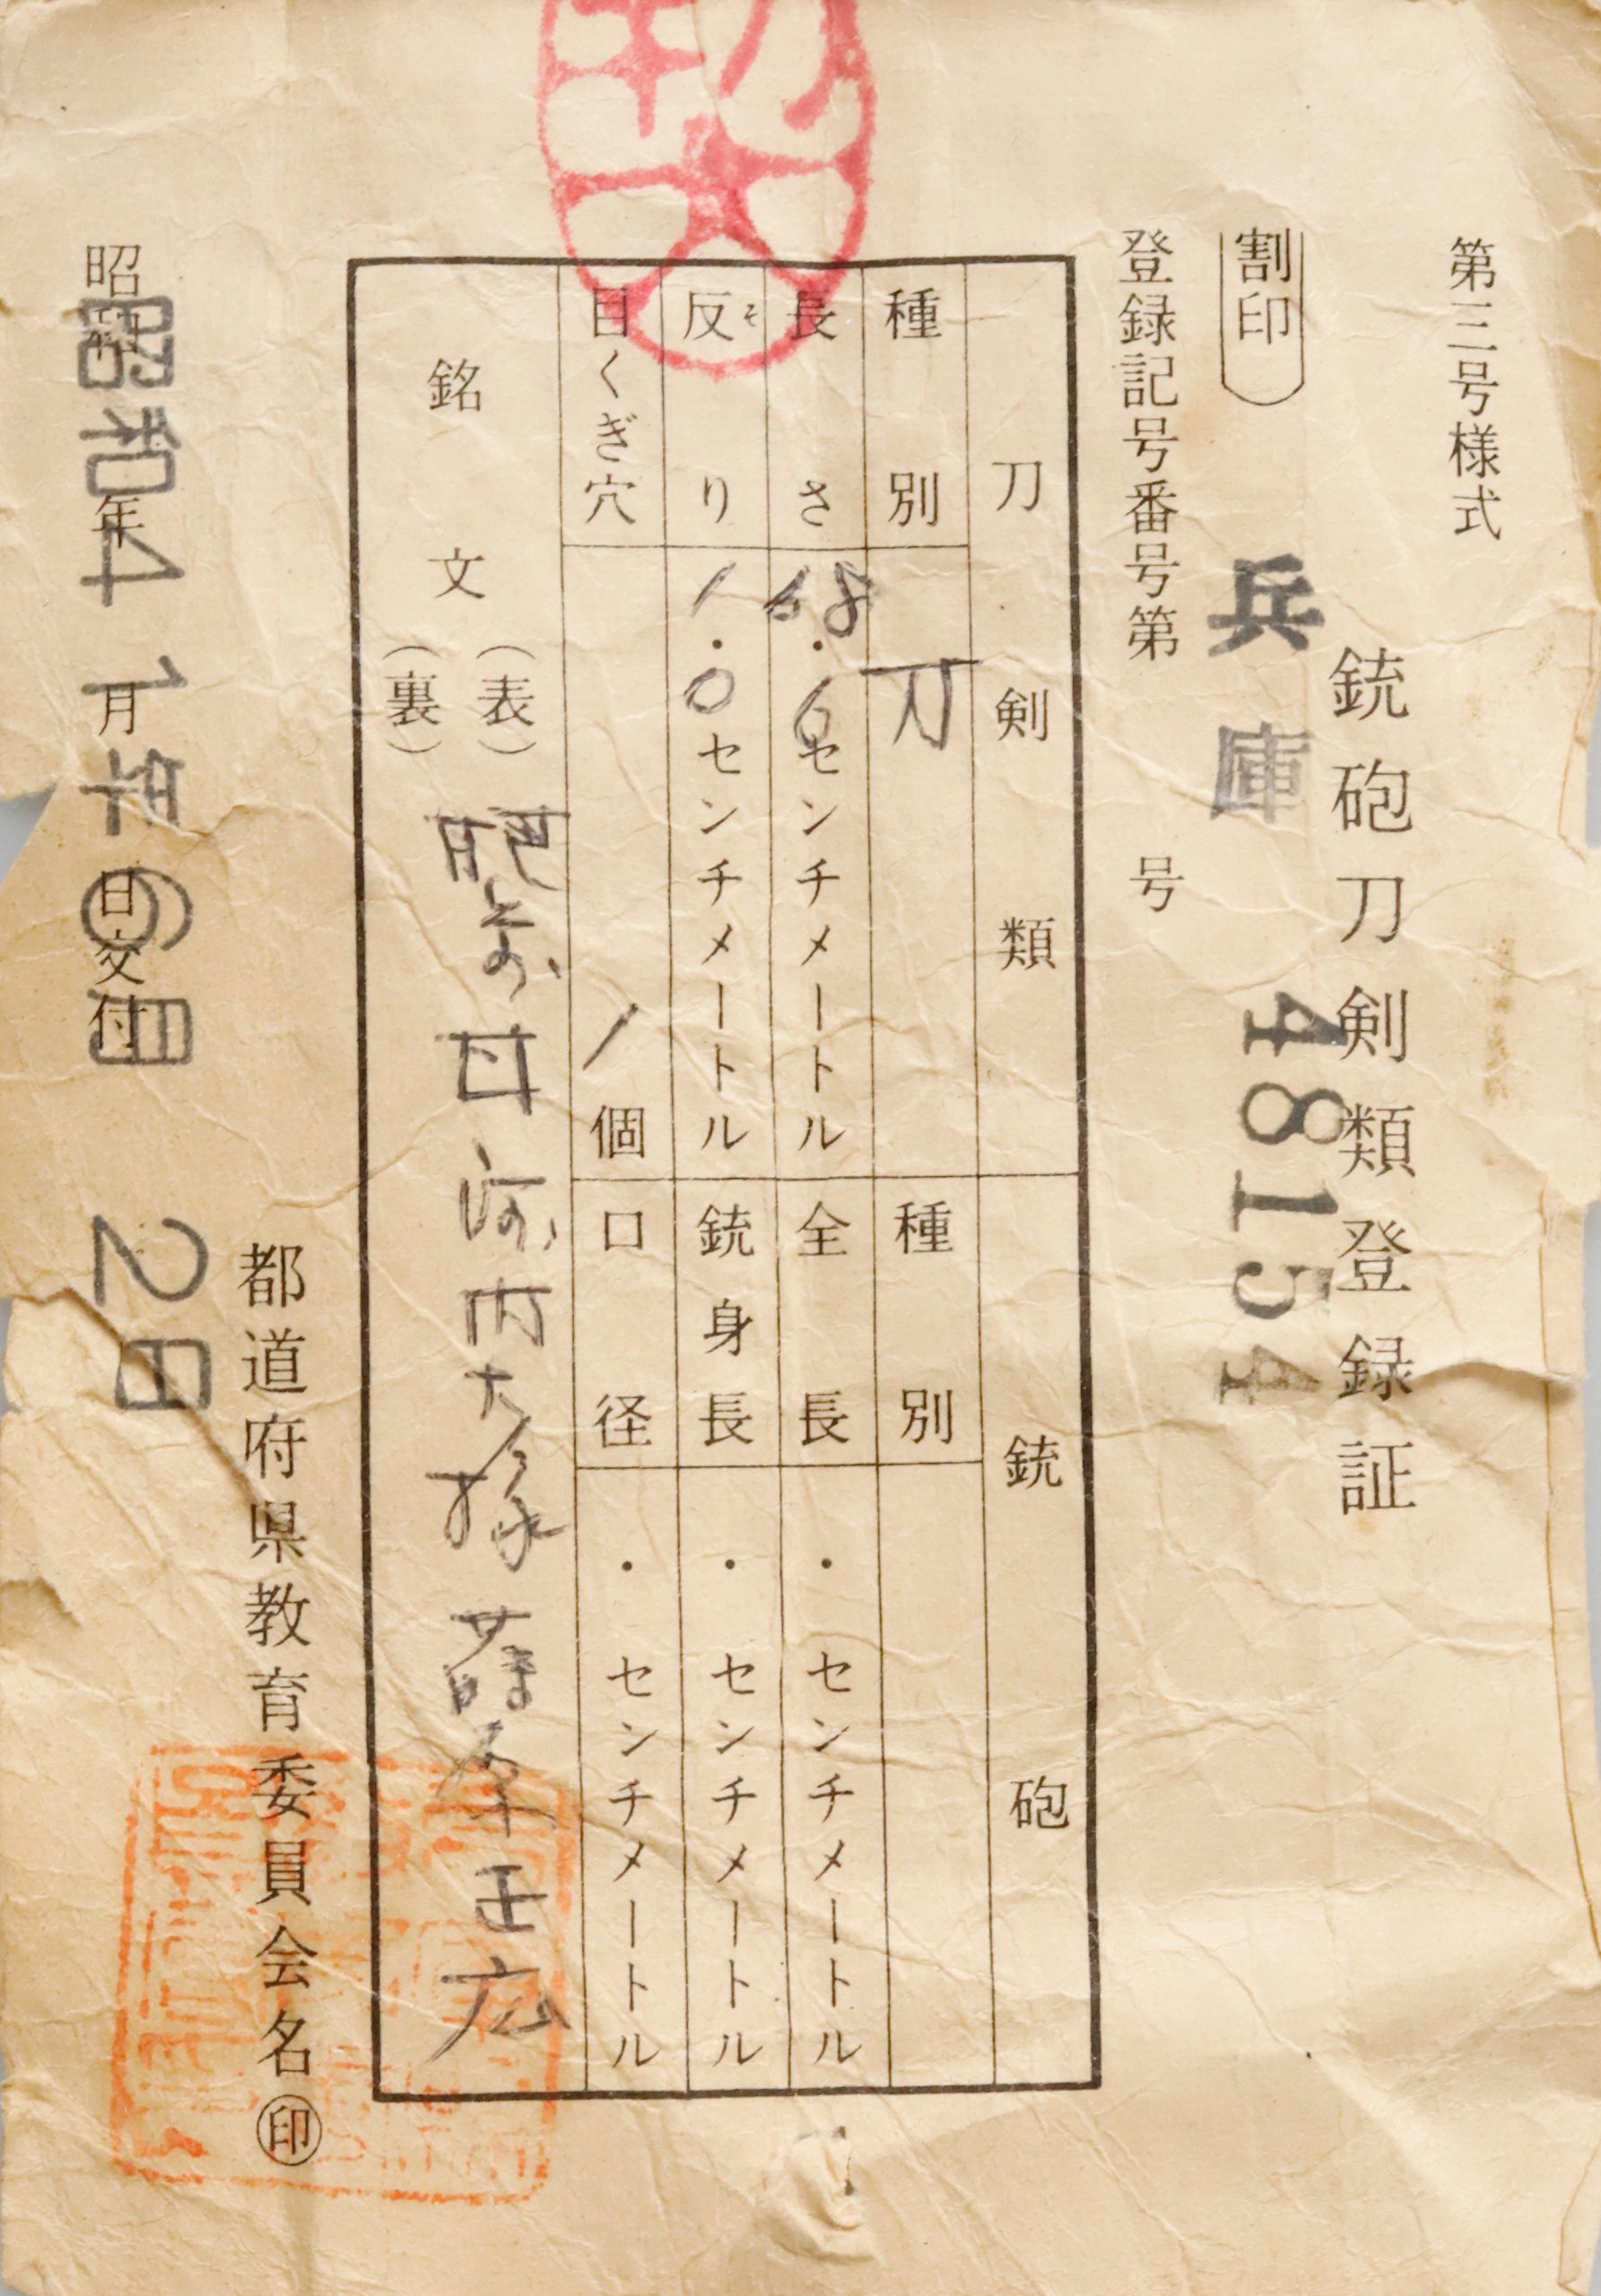 第三号様式
銃砲刀剣類登録証
割印
兵庫 48154
登録記号番号第 号
刀剣類
種別 刀
長さ 68.6センチメートル
反り そ 1.0センチメートル
目くぎ穴 1個
銃砲
種別
全長 . センチメートル
銃身長 . センチメートル
口径 . センチメートル
銘文
(表) 肥前
河内大掾
正広
(裏)
都道府県教育委員会名 印
昭和 年 月 日交付
昭和41年6月2日